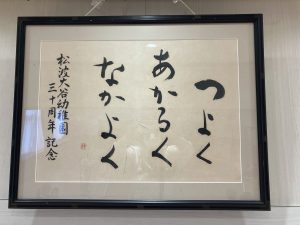 つよく
あかるく
なかよく
松波大谷幼稚園
三十周年記念